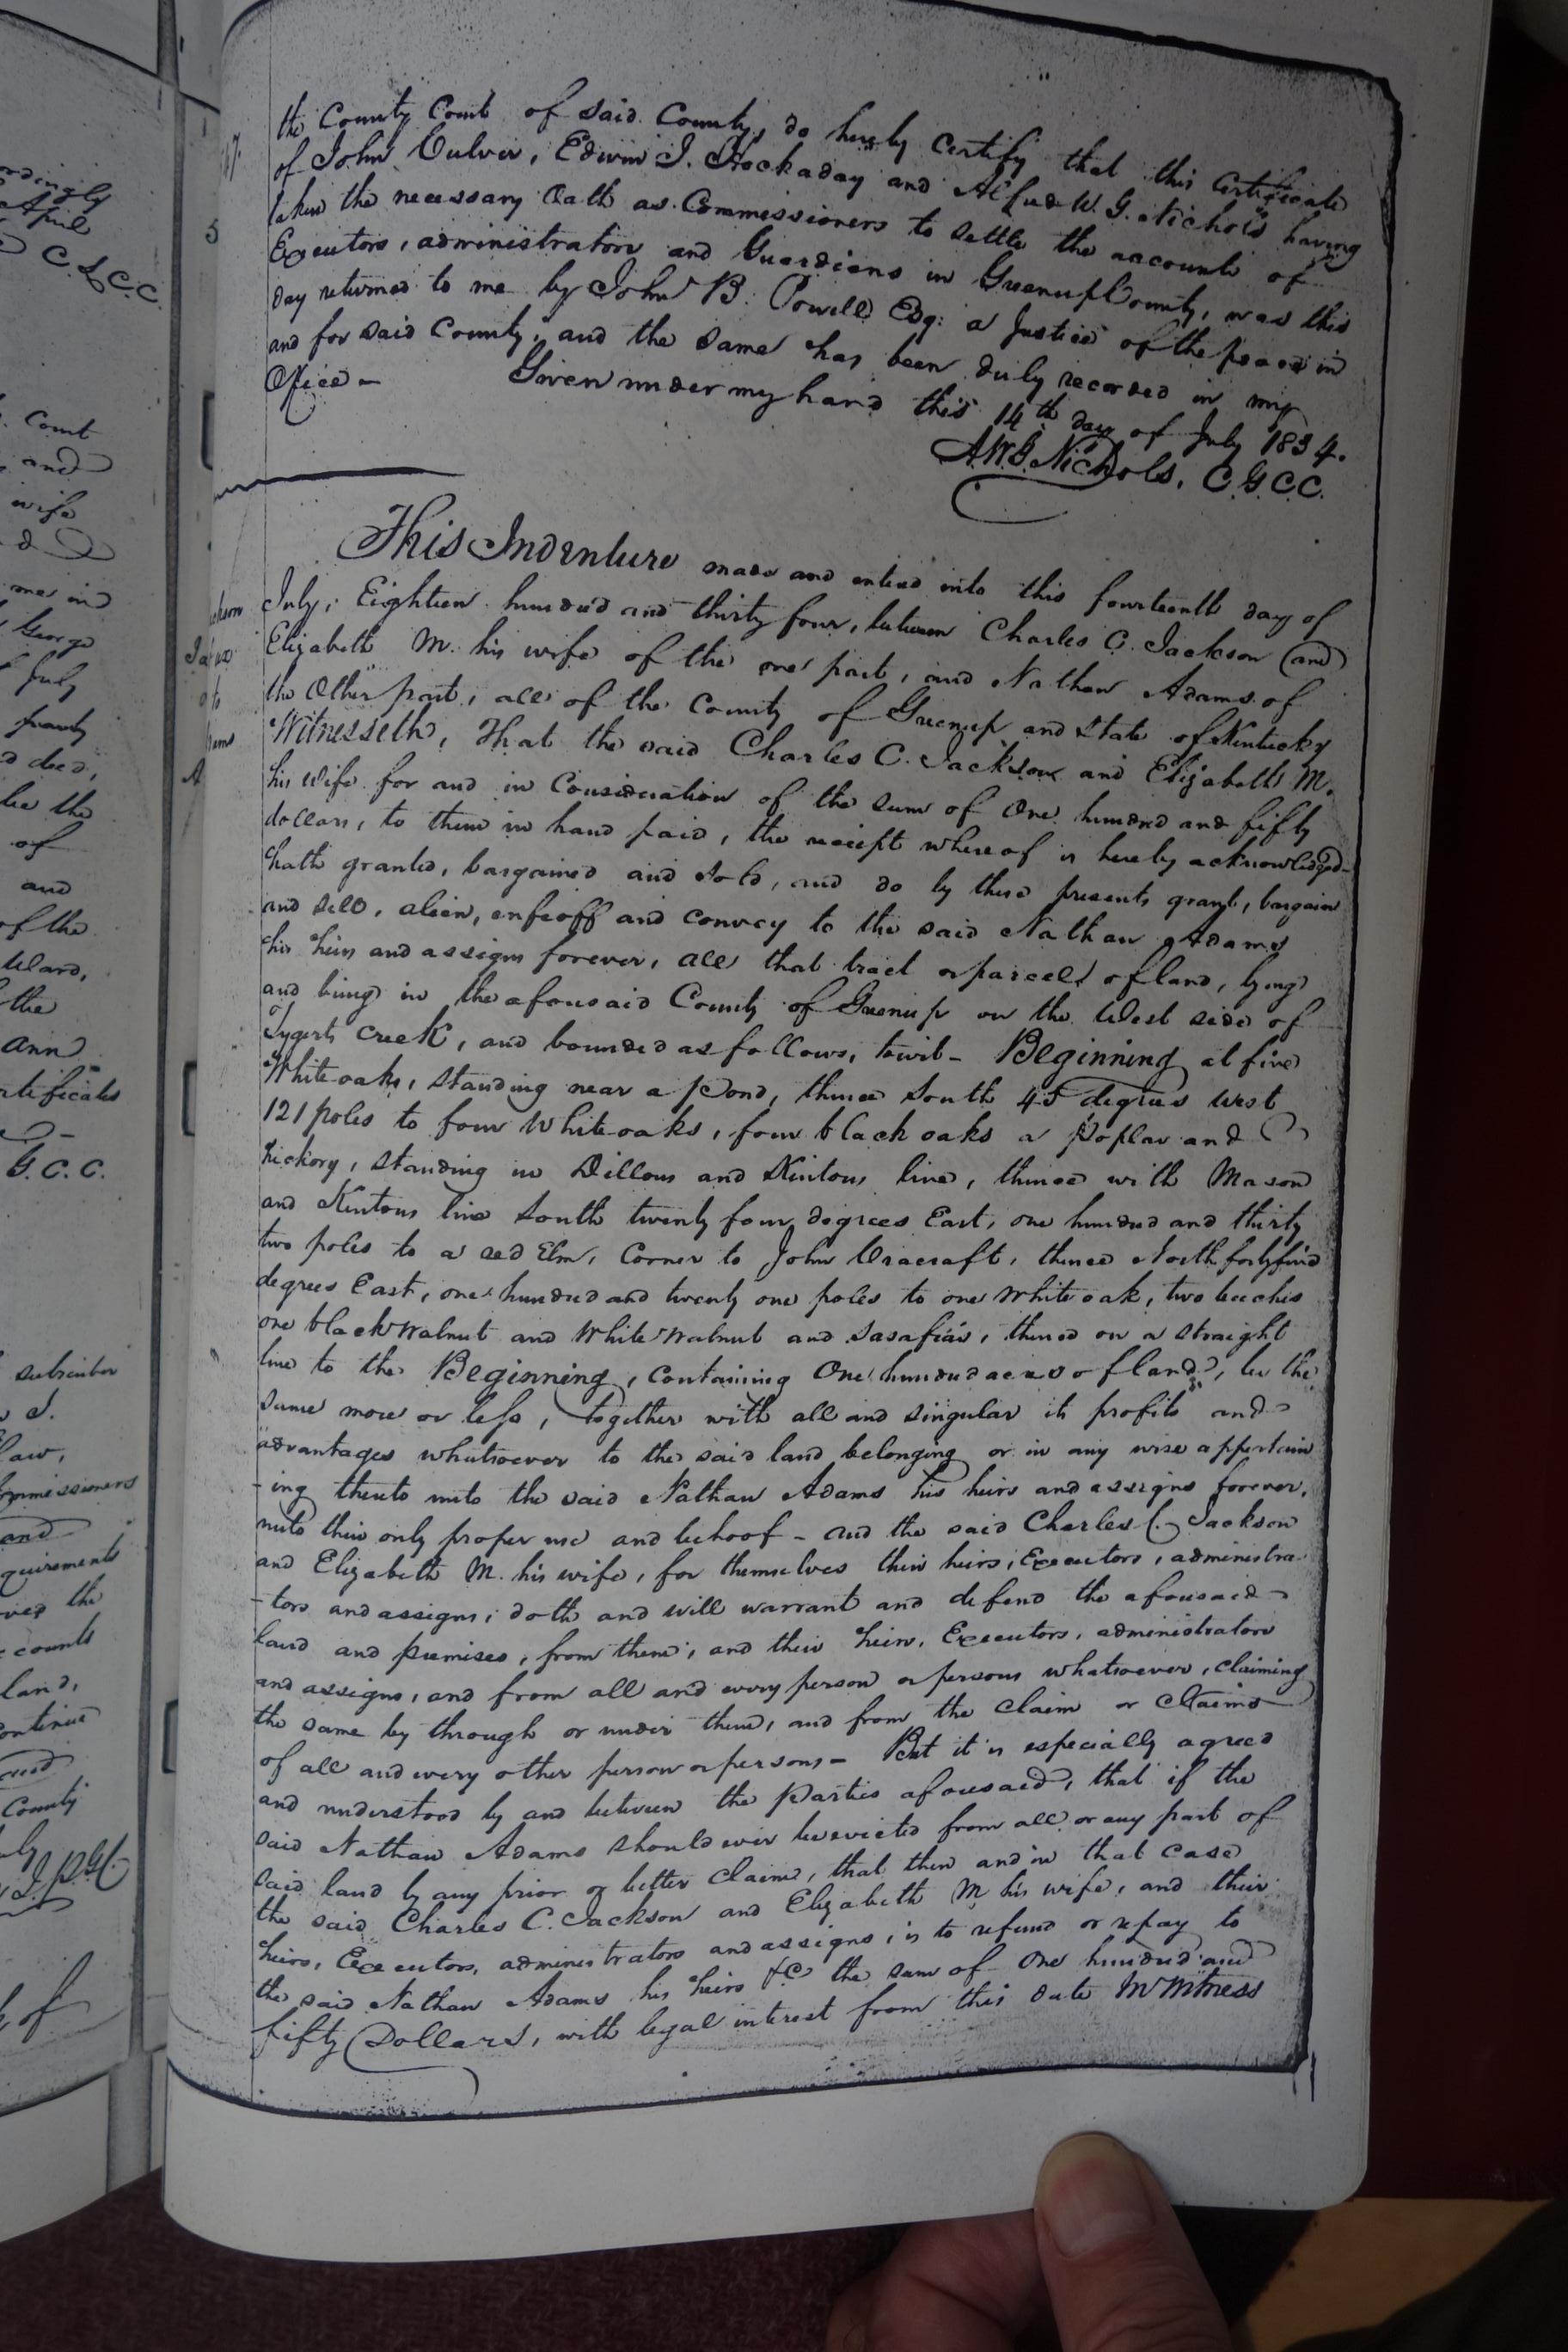 the County Court of said County, do hereby Certify that this Certificate
of John Culver, Edwin I. Hockaday and Alfred W. G. Nichols having
taken the necessary Oath as Commissioners to settle the accounts of
Executors, administrators and Guardians in Greenup County, was this
day returned to me by John B. Powell Esq: a Justice of the peace in
and for said County, and the same has been duly recorded in my
Office – Given under my hand this 14th day of July 1834.
A.W.G. Nichols, C.G.C.C.
This Indenture made and entered into this fourteenth day of
July, Eighteen hundred and thirty four, between Charles C. Jackson and
Elizabeth M. his wife of the one part, and Nathan Adams of
the Other part, all of the County of Greenup and State of Kentucky
Witnesseth, That the said Charles C. Jackson and Elizabeth M.
his Wife for and in Consideration of the sum of One hundred and fifty
dollars, to them in hand paid, the receipt whereof is hereby acknowledged–
hath granted, bargained and sold, and do by these presents grant, bargain
and sell, alien, enfeoff and convey to the said Nathan Adams
his heirs and assigns forever, all that tract or parcell of land, lying
and being in the aforesaid County of Greenup on the West side of
Tygerts Creek, and bounded as follows, towit – Beginning at five
White oaks, standing near a pond, thence South 45 degrees West
121 poles to four White oaks, four black oaks a poplar and
hickory, standing in Dillons and Kintons line, thence with Mason
and Kintons line South twenty four degrees East, one hundred and thirty
two poles to a red Elm, Corner to John Uracraft, thence North forty five
degrees East, one hundred and twenty one poles to one White oak, two beeches
one black Walnut and White Walnut and Sasafras, thence on a straight
line to the Beginning, containing One hundred acres of land, be the
same more or less, together with all and singular its profits and
advantages whatsoever to the said land belonging or in any wise appertain
-ing thereto unto the said Nathan Adams his heirs and assigns forever,
unto their only proper use and behoof – and the said Charles C. Jackson
and Elizabeth M. his wife, for themselves their heirs, Executors, administra-
-tors and assigns, doth and will warrant and defend the aforesaid
land and premises, from them, and their heirs, Executors, administrators
and assigns, and from all and every person or persons whatsoever, claiming
the same by through or under them, and from the Claim or Claims
of all and every other person or persons – But it is especially agreed
and understood by and between the Parties aforesaid, that if the
said Nathan Adams should ever be evicted from all or any part of
said land by any prior or better Claim, that then and in that Case
the said Charles C. Jackson and Elizabeth M his wife, and their
heirs, Executors, administrators and assigns, is to refund or repay to
the said Nathan Adams his heirs &c the sum of One hundred and
fifty Dollars, with legal interest from this date In Witness